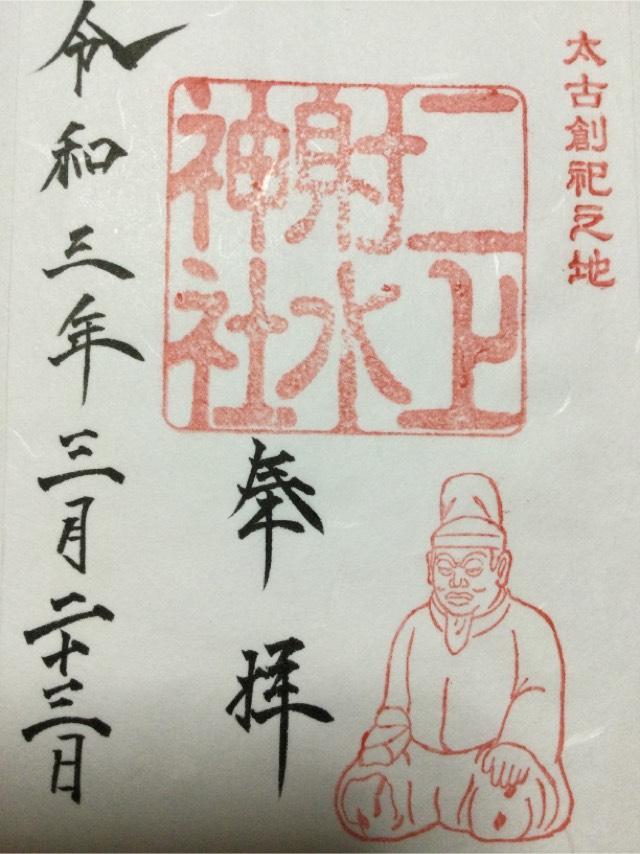 太古創祀之地
二上
射水
神社
奉拝
令和三年三月二十三日